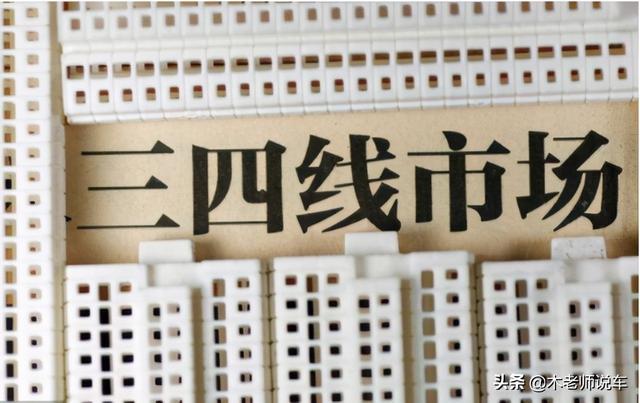 三四线市场
头条 @木老师说车